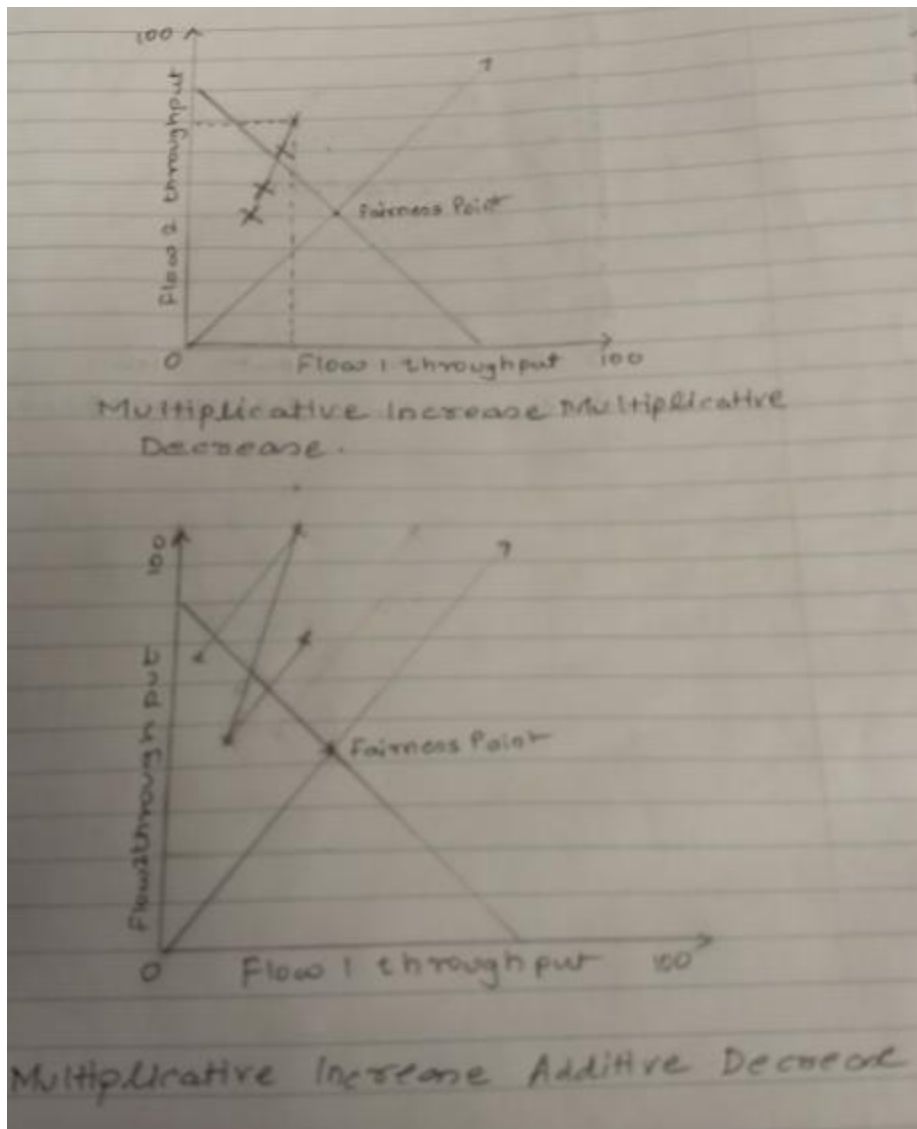 100
Flow 2 throughput
Fairness Point
0
Flow 1 throughput 100
Multiplicative Increase Multiplicative
Decrease.
100
Flow2throughput
Fairness Point
0
Flow 1 throughput 100
Multiplicative Increase Additive Decrease